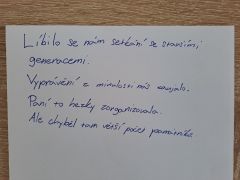 Líbilo se nám setkání se staršími
generacemi.
Vyprávění z minulosti nás zaujalo.
Paní to hezky zorganizovala.
Ale chyběl tam větší počet pamětníků.